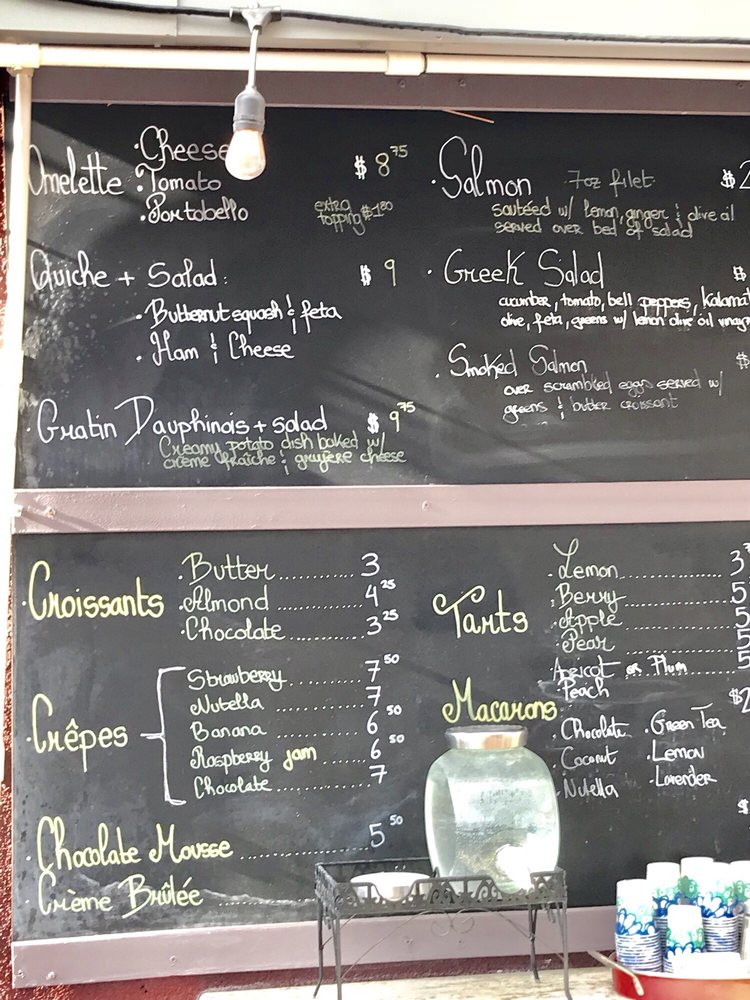 Omelette
· Cheese
· Tomato
· Portobello
$ 8 75
extra
topping $1.80
Quiche + Salad:
$ 9
· Butternut squash & feta
· Ham & Cheese
Gratin Dauphinois + salad
$ 9 75
Creamy potato dish baked w/
crème fraîche & gruyère cheese
· Salmon 7oz filet.
$2
sautéed w/ lemon, ginger & olive oil
served over bed of salad
· Greek Salad
$
cucumber, tomato, bell peppers,
olive, feta, greens w/ lemon olive oil
· Smoked Salmon
$
over scrambled eggs served w/
greens & butter croissant
· Croissants
· Butter ............ 3
· Almond ............ 4 25
· Chocolate ............ 3 25
· Crêpes
Strawberry ............ 7 50
Nutella ............ 7
Banana ............ 6 50
Raspberry jam ............ 6 50
Chocolate ............ 7
· Chocolate Mousse ............ 5 50
· Crème Brûlée ............
· Tarts
· Lemon ............ 3
· Berry ............ 5
· Apple ............ 5
· Pear ............ 5
Apricot or Plum ............ 5
Peach
Macarons
$2
· Chocolate
· Coconut
· Nutella
· Green Tea
· Lemon
· Lavender
$